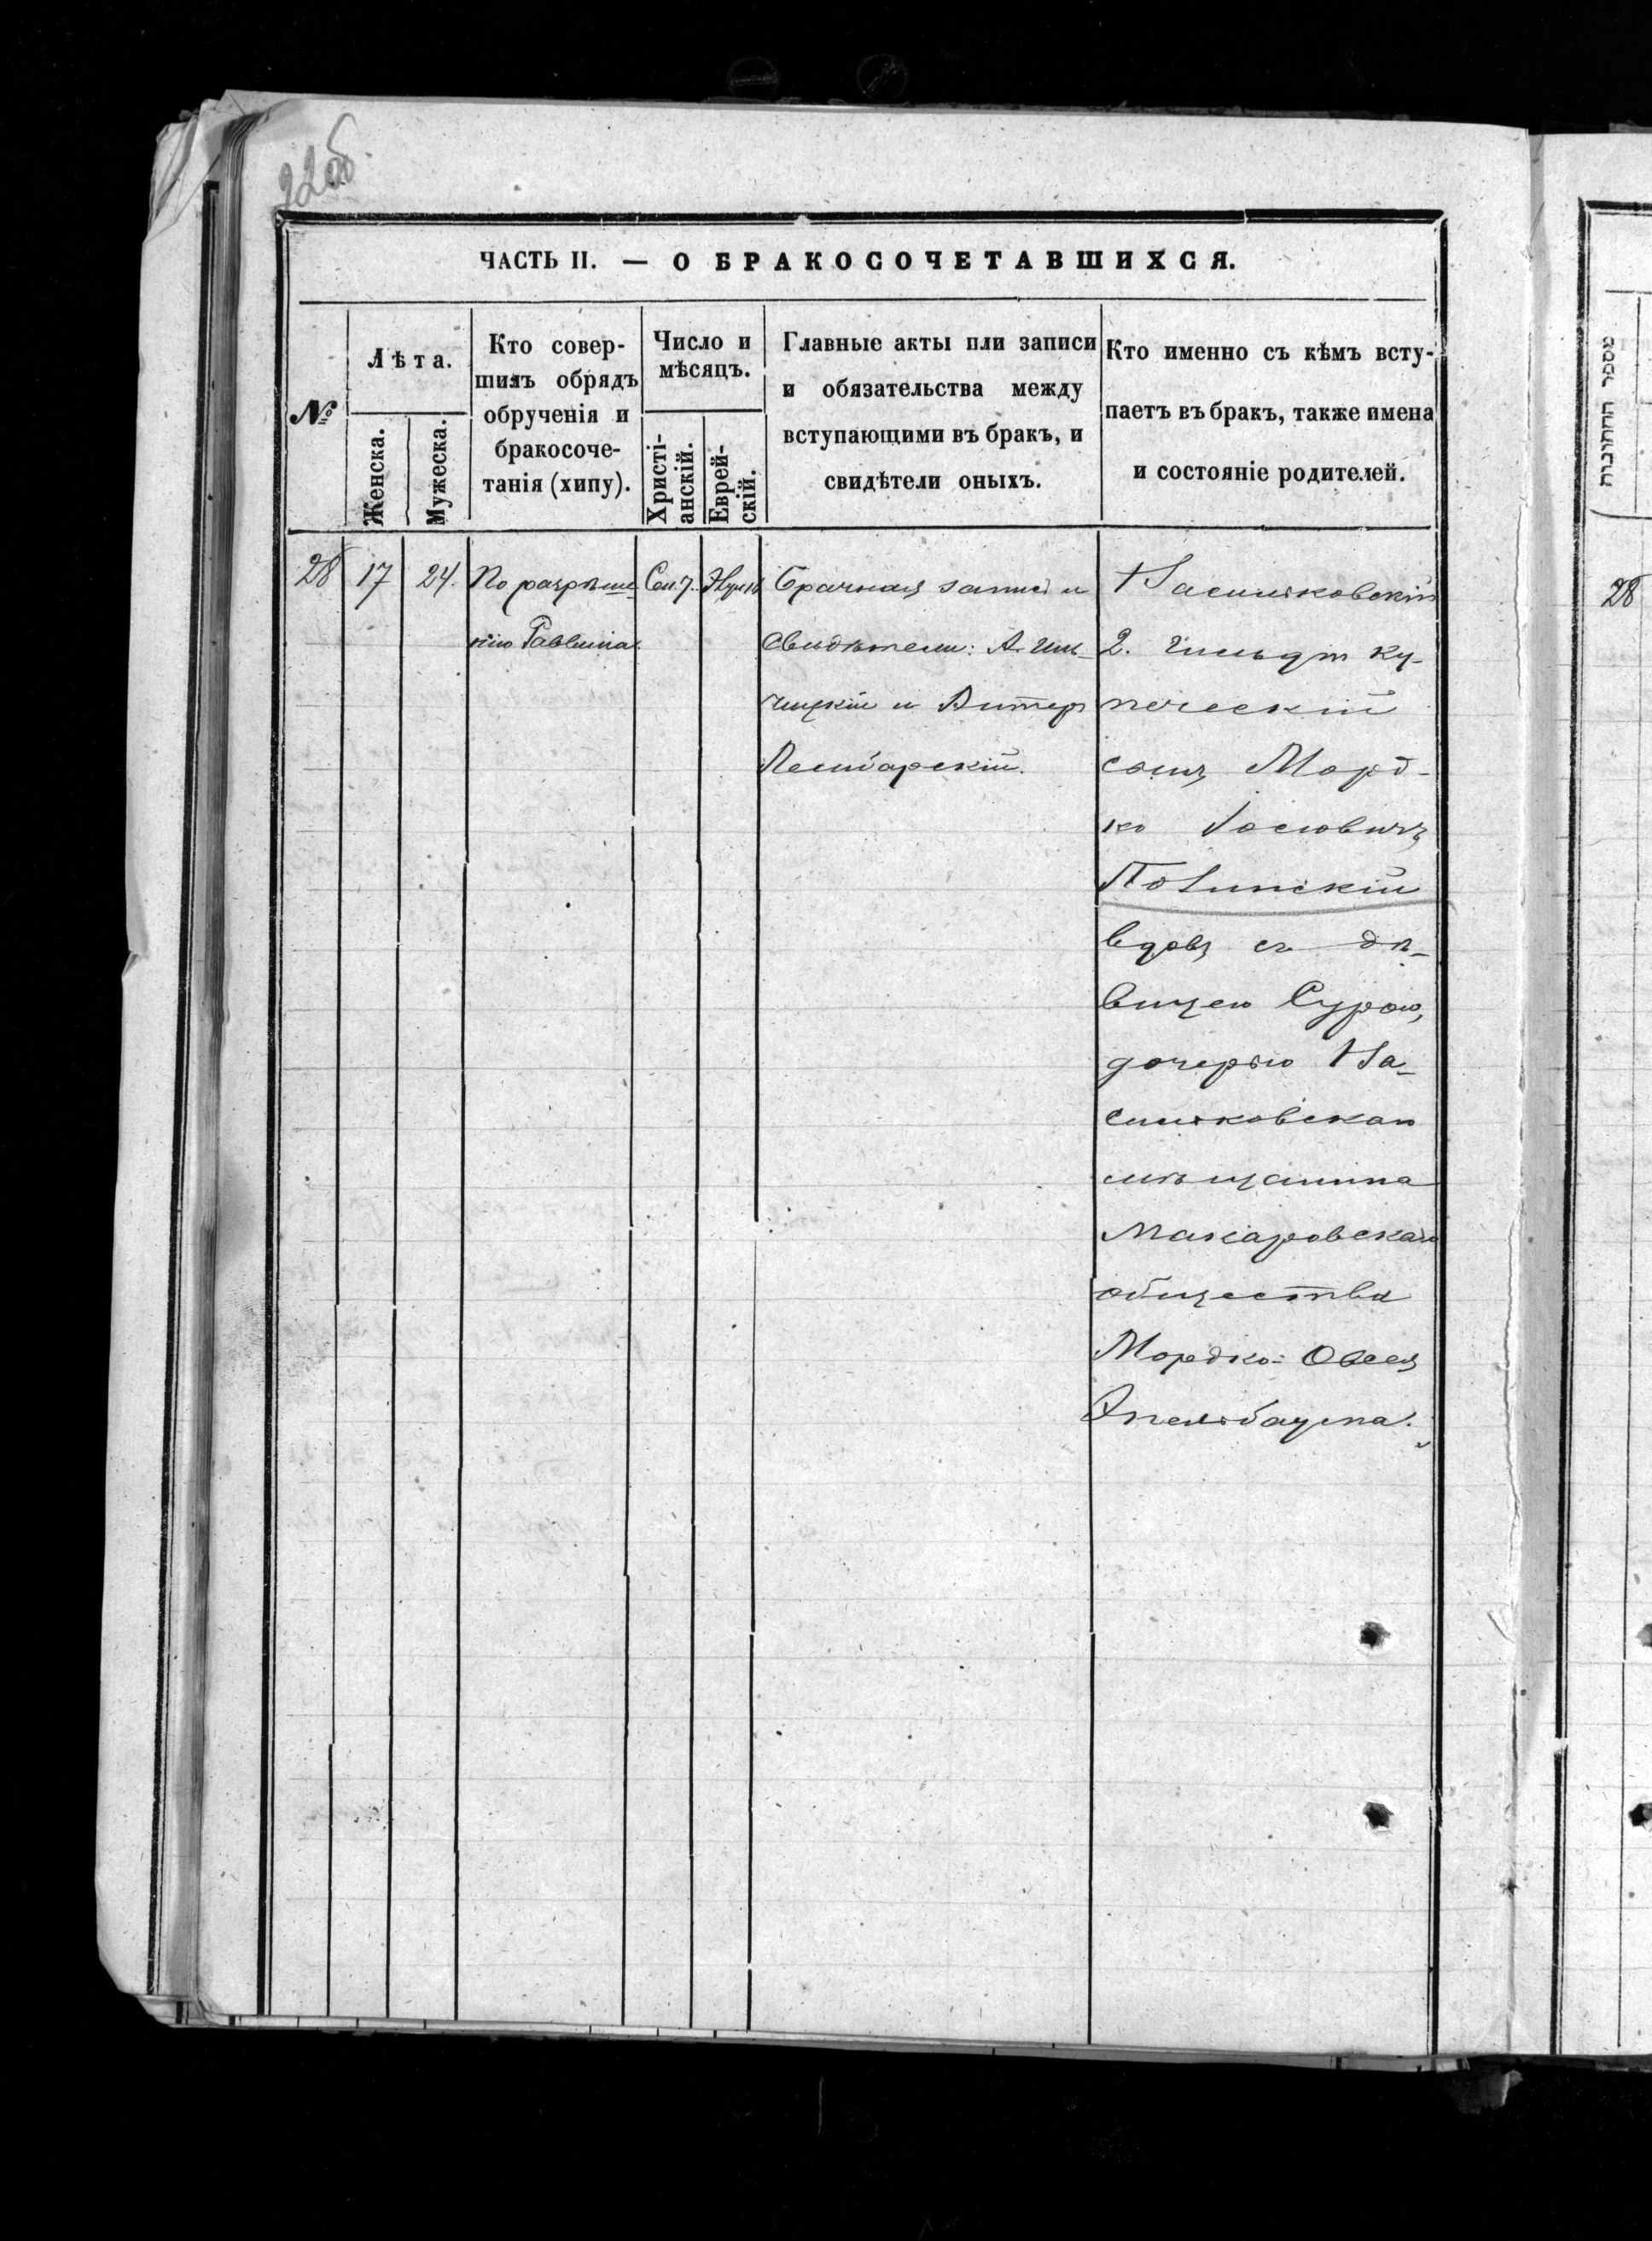 22об.
ЧАСТЬ II. — О БРАКОСОЧЕТАВШИХСЯ.
№
Лѣта.
Женска.
Мужеска.
Кто совер-
шилъ обрядъ
обрученія и
бракосоче-
танія (хипу).
Число и
мѣсяцъ.
Христі-
анскій.
Еврей-
скій.
Главные акты или записи
и обязательства между
вступающими въ бракъ, и
свидѣтели оныхъ.
Кто именно съ кѣмъ всту-
паетъ въ бракъ, также имена
и состояніе родителей.
28
17
24.
По разрѣше-
нію Раввина.
Сен. 7.
Брачная запись и
свидѣтели: А.
и
Васильковскій
2. гильдіи ку-
печескій
сынъ Морд-
ко Іосіовичъ
вдовъ съ дѣ-
вицею Сурою,
дочерью Ва-
сильковскаго
мѣщанина
Макаровскаго
общества
Мордко-Овсея
Эпельбаума.
מספר החתונות
28